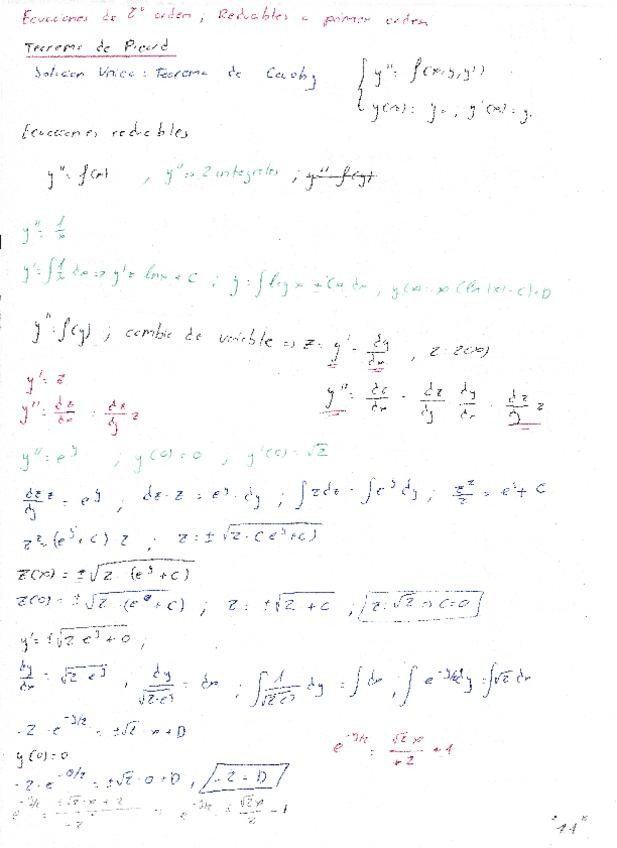 Ecuaciones de 2º orden; Reducibles a primer orden
Teorema de Picard
Solucion Unica: Teorema de Cauchy { y'' = f(x,y,y')
y(x₀) = y₀ ; y'(x₀) = y₁
Ecuaciones reducibles
y'' = f(x) , y'' => 2 integrales ; y'' = f(y)
y'' = 1/x
y' = ∫ 1/x dx => y' = ln x + C ; y = ∫ log x + C dx , y(x) = x (ln |x| - C) + D
y'' = f(y) ; cambio de variable => z = y' = dy/dx , z = z(x)
y' = z
y'' = dz/dx = dz/dy z
y'' = dz/dx = dz/dy · dy/dx = dz/dy z
y'' = e^y ; y(0) = 0 , y'(0) = √2
dz/dy z = e^y , dz · z = e^y · dy ; ∫ z dz = ∫ e^y dy ; z²/2 = e^y + C
z² = (e^y + C) 2 ; z = ± √2 · (e^y + C)
z(x) = ± √2 · (e^y + C)
z(0) = ± √2 · (e^0 + C) ; z = ± √2 + C , z = √2 => C = 0
y' = ± √2 e^y + 0 ;
dy/dx = √2 e^y , dy/√2·e^y = dx ; ∫ 1/√2 e^y dy = ∫ dx , ∫ e^-y/2 dy = ∫ √2 dx
-2 · e^-y/2 = ± √2 · x + D
y(0) = 0
e^-y/2 = √2 x / +2 + 1
-2 · e^-0/2 = ± √2 · 0 + D , -2 = D
e^-y/2 = ± √2 · x + 2 / -2 => e^-y/2 = ± √2 x / 2 - 1